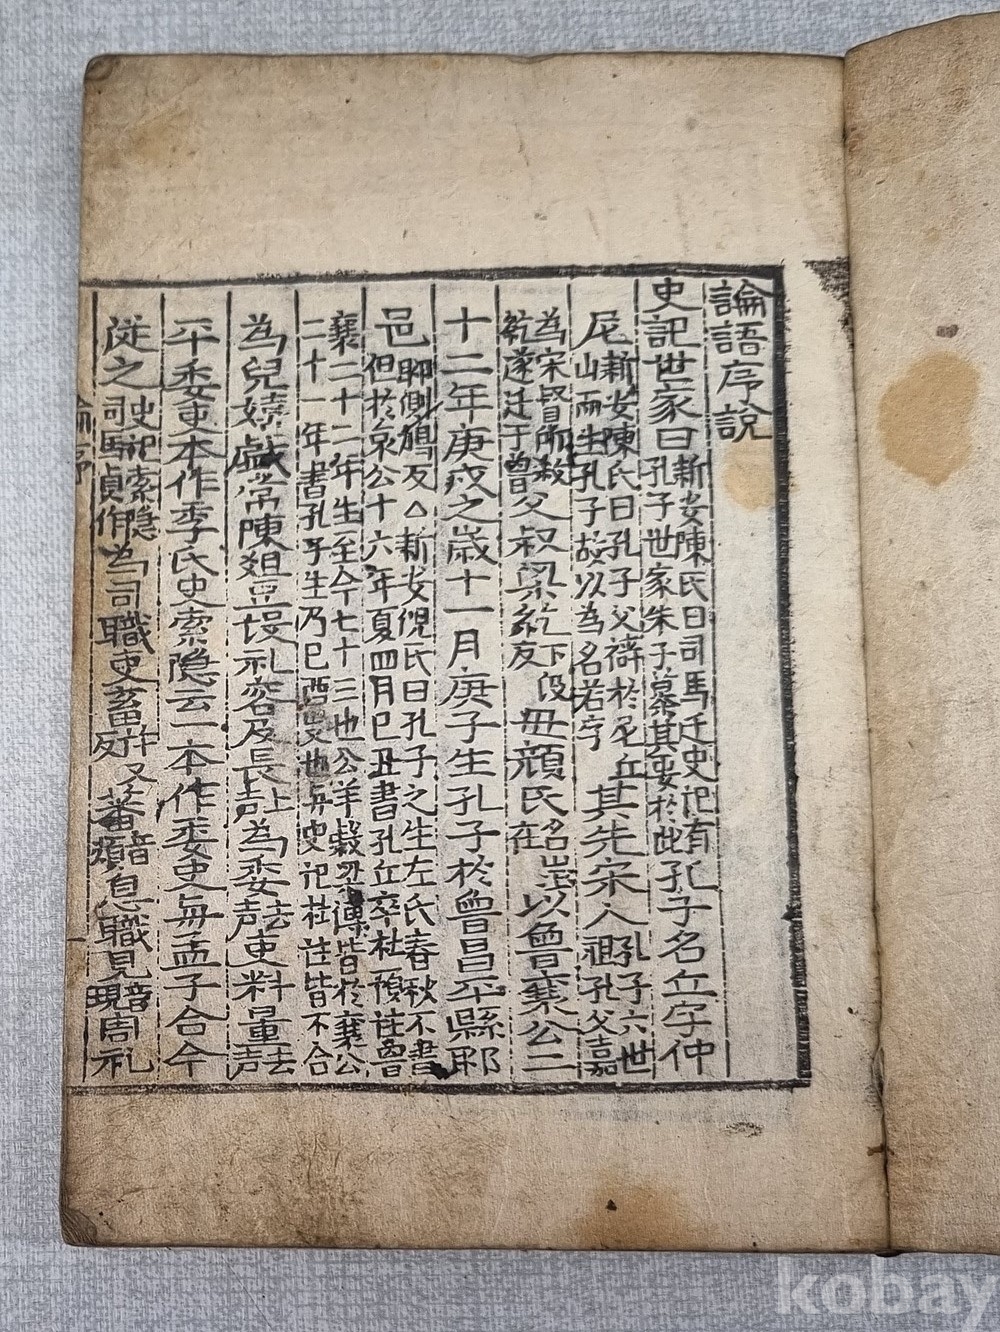 論語序說
史記世家曰新安陳氏曰司馬迁史记有孔子世家朱子纂其要於此孔子名丘字仲
尼新安陳氏曰孔子父禱於尼丘山而生孔子故以為名若字其先宋人孔子六世祖孔父嘉
為宋督所殺紇遂迁于魯父叔梁紇下没反母顔氏名在以魯襄公二
十二年庚戌之歲十一月庚子生孔子於魯昌平縣郰
邑郰側鳩反△新安倪氏曰孔子之生左氏春秋不書但於哀公十六年夏四月己丑書孔丘卒杜預註魯
襄二十二年生至今七十三也公羊穀梁傳皆於襄公二十一年書孔子生乃已酉歲也与史记杜註皆不合
為兒嬉戲常陳俎豆設礼容及長上声為委去声吏料量去声
平委吏本作季氏史索隐云一本作委吏与孟子合今
從之史记索隐司馬貞作為司職吏畜許又反蕃音煩息職見音現周礼
論序
kobay